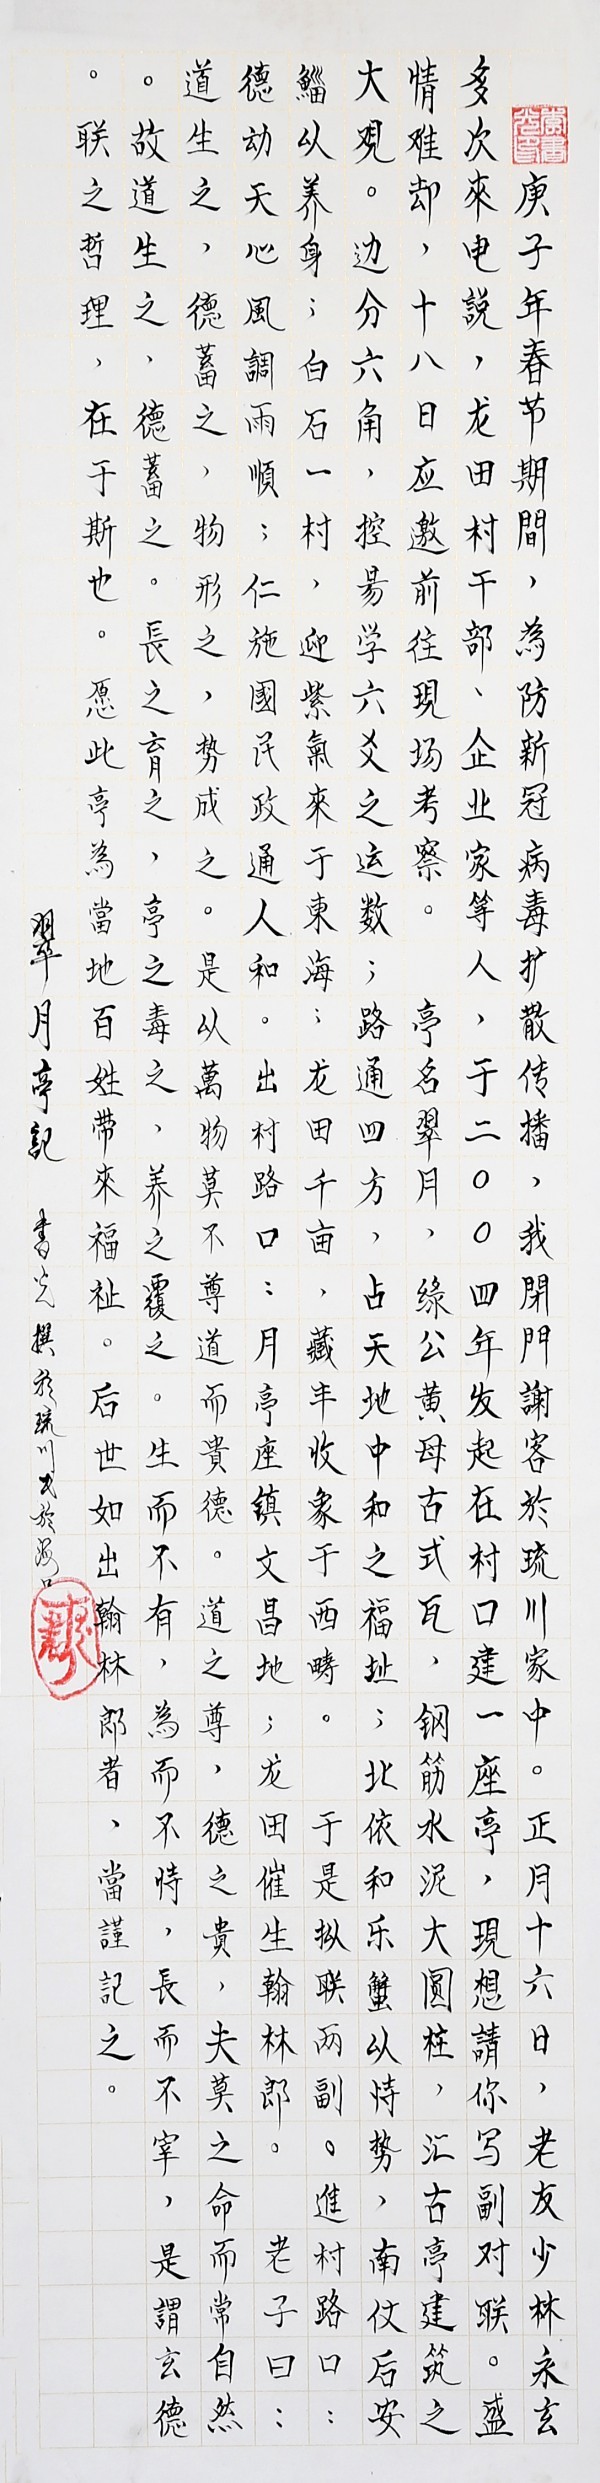 庚子年春节期間，為防新冠病毒扩散传播，我閉門謝客於琉川家中。正月十六日，老友少林永玄
多次來电説，龙田村干部、企业家等人，于二〇〇四年发起在村口建一座亭，現想請你写副对联。盛
情难却，十八日应邀前往現场考察。　亭名翠月，缘公黄母古式瓦，钢筋水泥大圆柱，汇古亭建筑之
大观。边分六角，控易学六爻之运数；路通四方，占天地中和之福址；北依和乐蟹以恃势，南仗后安
鲻以养身；白石一村，迎紫氣來于東海；龙田千亩，藏丰收象于西畴。　于是拟联两副。進村路口：
德动天心風調雨順；仁施國民政通人和。出村路口：月亭座镇文昌地；龙田催生翰林郎。　老子曰：
道生之，德蓄之，物形之，势成之。是以萬物莫不尊道而貴德。道之尊，德之貴，夫莫之命而常自然
。故道生之，德蓄之。長之育之，亭之毒之，养之覆之。生而不有，為而不恃，長而不宰，是謂玄德
。联之哲理，在于斯也。愿此亭為當地百姓带來福祉。后世如出翰林郎者，當謹記之。
翠月亭記　書光撰於琉川書於海口